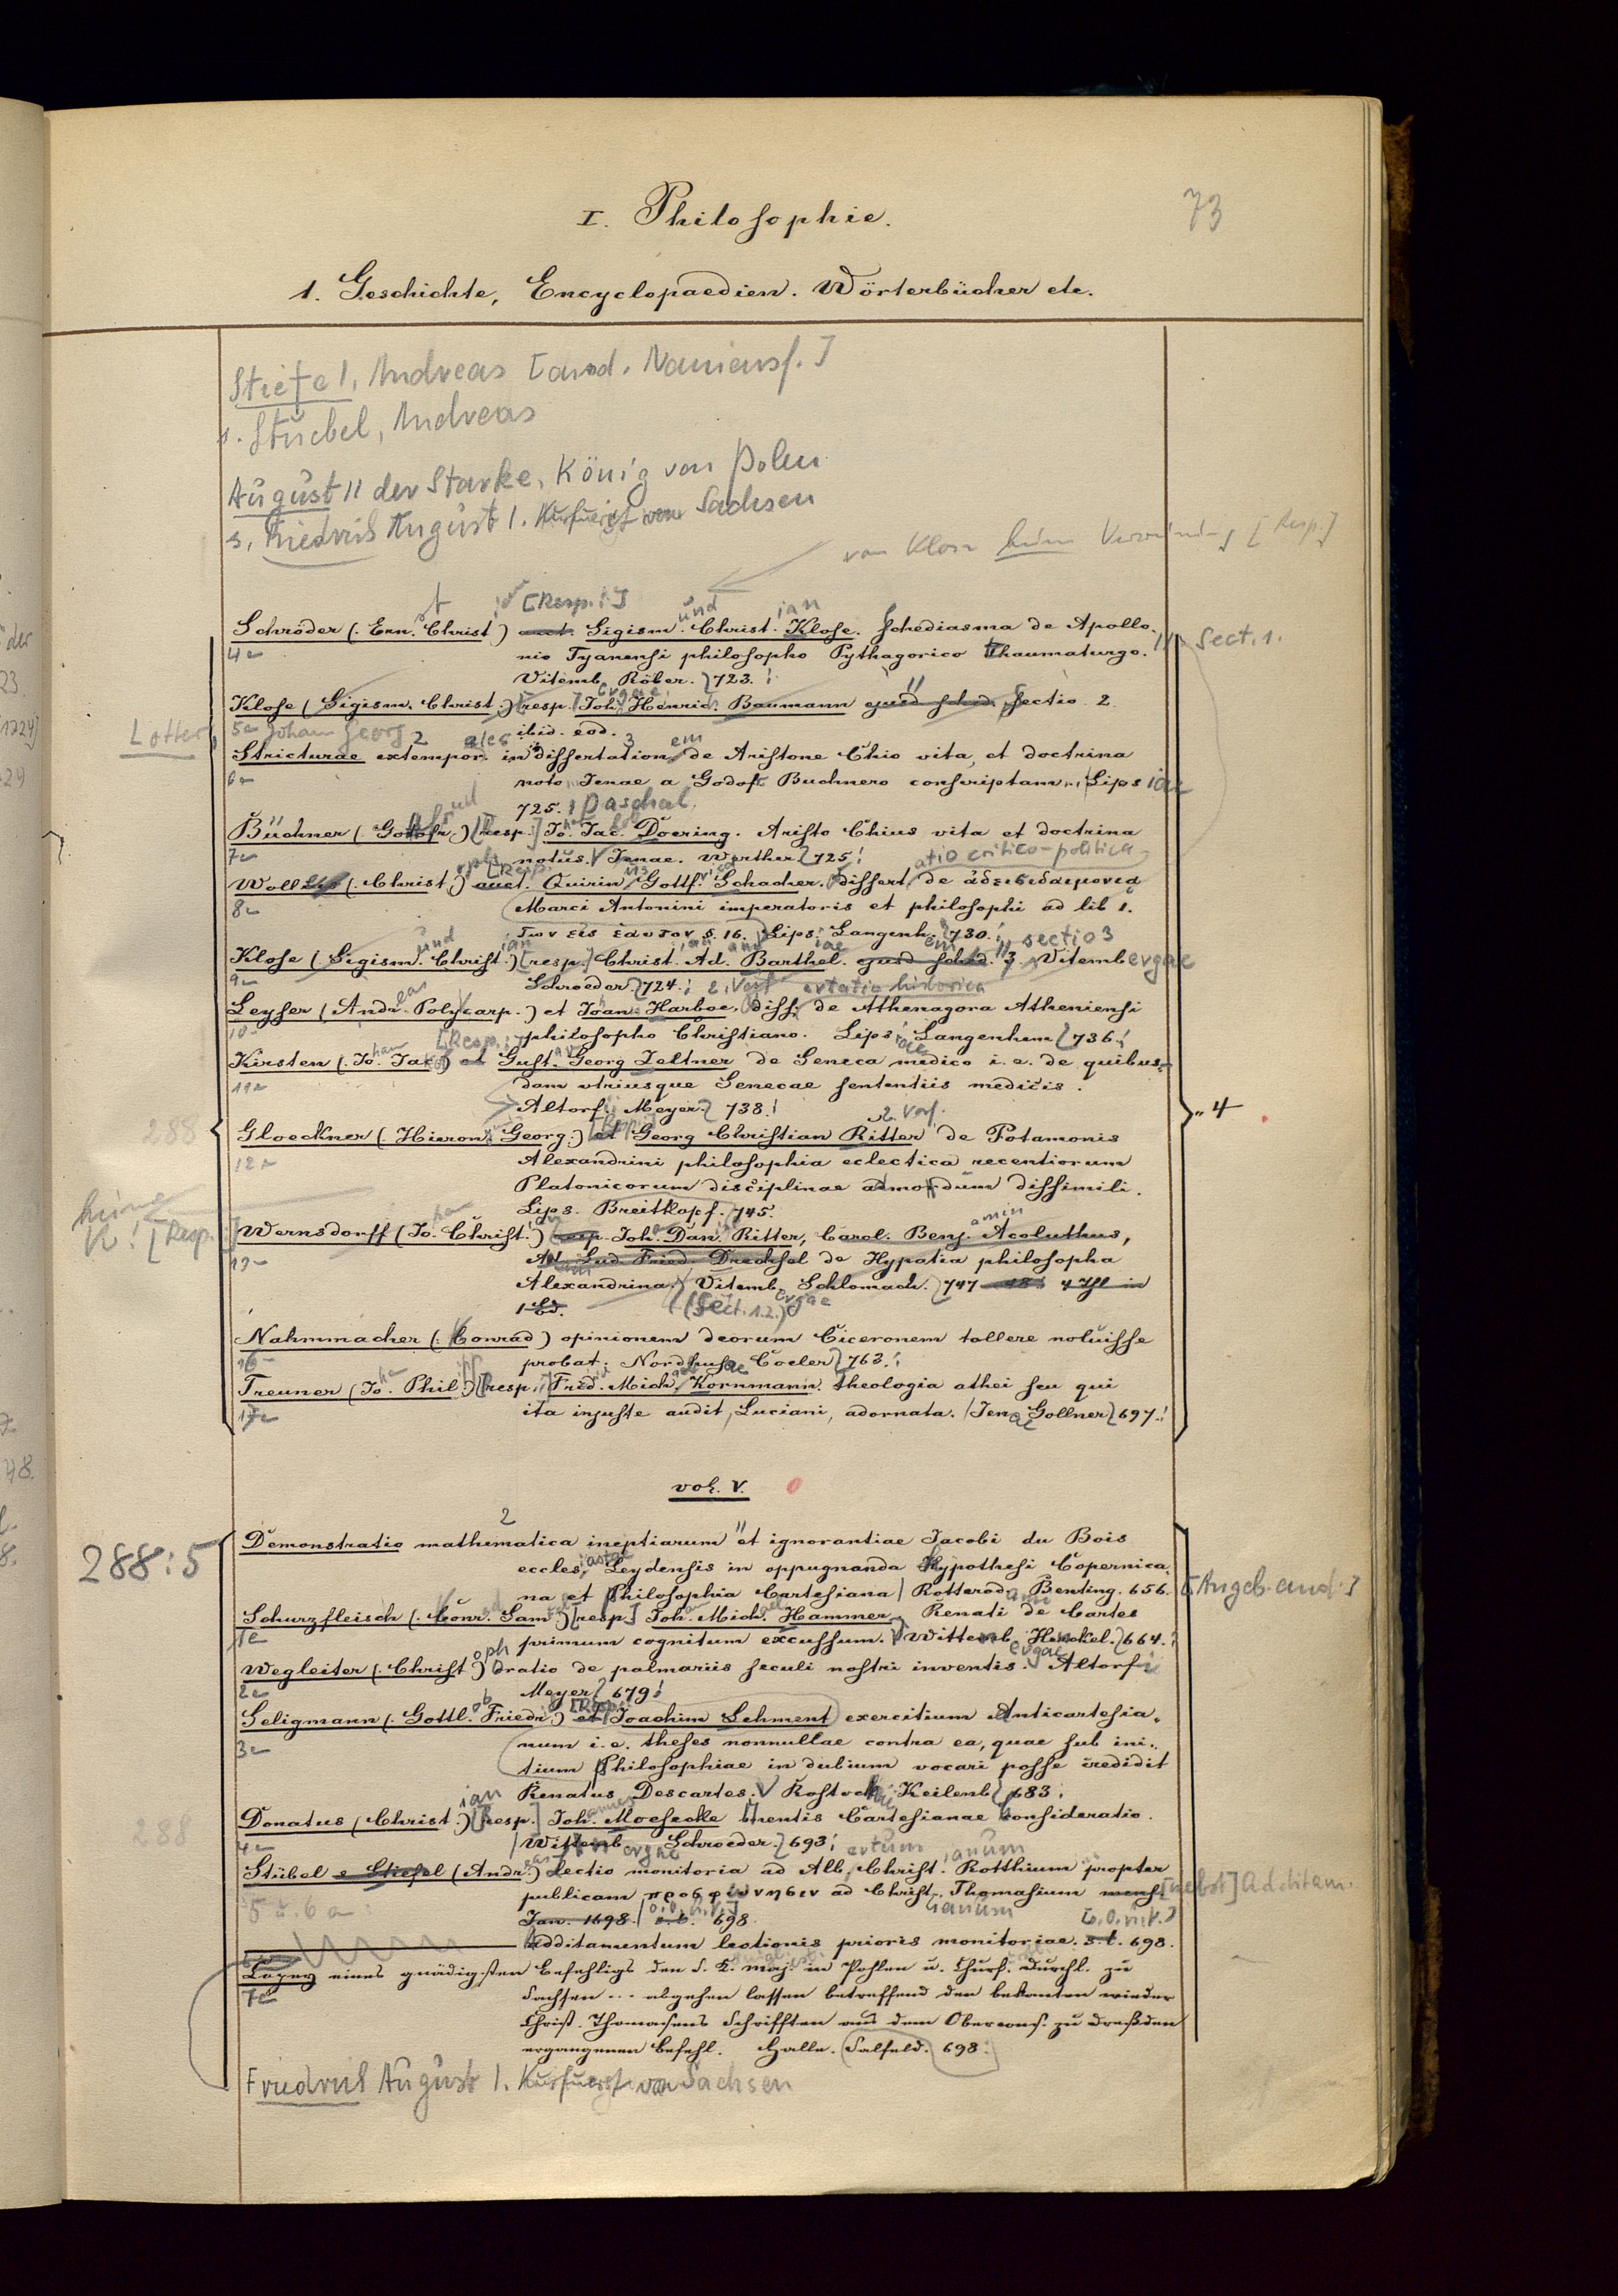 73
I. Philosophie.
1. Geschichte, Encyclopaedien. Wörterbücher etc.
Stiefel, Andreas
s. Stuebel, Andreas
August II der Starke, König von Polen
s. Friedrich August I. Kurfuerst von Sachsen
von Klose keine [Resp.]
[Resp.:] und ian
Schröder (. Ern. Christ.) auct. Sigism. Christ. Klose. Schediasma de Apollo-
4a nio Tyanensi philosopho Pythagorico thaumaturgo. Sect. 1.
Vitemb. Röber. 723.
Klose (Sigism. Christ.) [resp. Joh. Henric. Baumann ejusd sched. Sectio 2.
Lotter, 5a Johann Georg ibid. eod.
Stricturae extempor. in dissertationem de Aristone Chio vita, et doctrina
6a noto Jenae a Godofr. Buchnero conscriptam. Lipsiae
725. Paschal.
Büchner (. Gottofr.) [resp.] Jo. Jac. Doering. Aristo Chius vita et doctrina
7a notus. Jenae. Werther 725.
[Resp. atio critico-politica
Woll (. Christ.) auct. Quirin. Gottf. Schacher. dissert. de ἀδεισιδαιμονια
8a Marci Antonini imperatoris et philosophi ad lib 1.
των εις εαυτον §. 16. Lips. Langenh. 730. sectio 3
Klose (Sigism. Christ.) [resp.] Christ. Ad. Barthel. ejusd sched. 3. Vitembergae
9a Schroeder. 724. 2. Verf ertatio historica
Leyser (Andr. Polycarp.) et Joan. Harboe. diss. de Athenagora Atheniensi
10a philosopho Christiano. Lips. Langenhem 736.
Kirsten (. Jo. Jac.) et Gust. Georg Zeltner de Seneca medico i. e. de quibus-
11a dam utriusque Senecae sententiis medicis.
Altorf. Meyer. 738.
2. Verf.
288 Gloeckner (. Hieron. Georg.) et Georg Christian Ritter de Potamonis
12a Alexandrini philosophia eclectica recentiorum
Platonicorum disciplinae admodum dissimili.
Lips. Breitkopf. 745.
keine [Resp.]
Wernsdorff (Jo. Christ.) resp. Joh. Dan. Ritter, Carol. Benj. Acoluthus,
13a Ad. Lud. Fried. Drechsel de Hypatia philosopha
Alexandrina. Vitemb. Schlomach. 747-48. 4 Thl in
1 Bd. (Sect. 1.2.)
Nahmmacher (. Conrad) opinionem deorum Ciceronem tollere noluisse
16 probat. Nordhusae Coeler 763.
Treuner (Jo. Phil.) [resp.] Frid. Mich. Kornmann. theologia athei seu qui
17a ita injuste audit, Luciani, adornata. Jenae Gollner 697.
4
vol. V.
288:5 Demonstratio mathematica ineptiarum et ignorantiae Jacobi du Bois
eccles. Leydensis in oppugnanda Hypothesi Copernica-
na et Philosophia Cartesiana Rotterod. Benting. 656. [Angeb. and.]
Schurzfleisch (. Conr. Sam.) [resp.] Joh. Mich. Hammer. Renati de Cartes
1a primum cognitum excussum. Wittemb. Henckel. 664.
Wegleiter (. Christ.) oratio de palmariis seculi nostri inventis. Altorf
2a Meyer 679.
Seligmann (. Gottl. Friedr.) et Joachim Schment exercitium Anticartesia-
3a num i. e. theses nonnullae contra ea, quae sub ini-
tium Philosophiae in dubium vocari posse credidit
Renatus Descartes. Rostock Keilenb. 683.
288 Donatus (Christ.) [resp.] Joh. Moeseke mentis Cartesianae consideratio.
4a Wittemb. Schroeder. 693.
Stübel s. Stiefel (Andr.) lectio monitoria ad Alb. Christ. Rotthium propter
5 u. 6 a: publicam προσφώνησιν ad Christ. Thomasium mens. [nebst] Additam.
Jan. 1698. s. l. 698.
Additamentum lectionis prioris monitoriae. s. l. 698.
Copey eines gnädigsten Befehligs den S. K. Maj. in Pohlen u. Churf. Durchl. zu
7a Sachsen ... abgehen lassen betreffend den bekanten wieder
Christ. Thomasens Schrifften aus dem Obercons. zu Dreßden
ergangenen Befehl. Halle. Salfeld. 698.
Friedrich August I. Kurfuerst von Sachsen